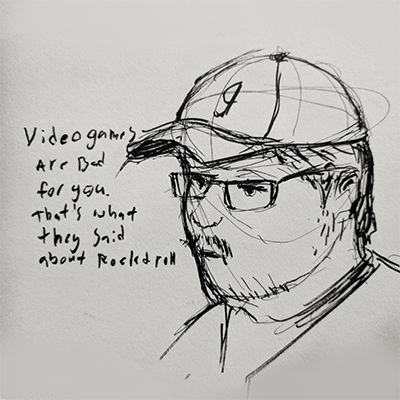 Videogames
Are Bad
for you.
That's what
they said
about Rock d roll